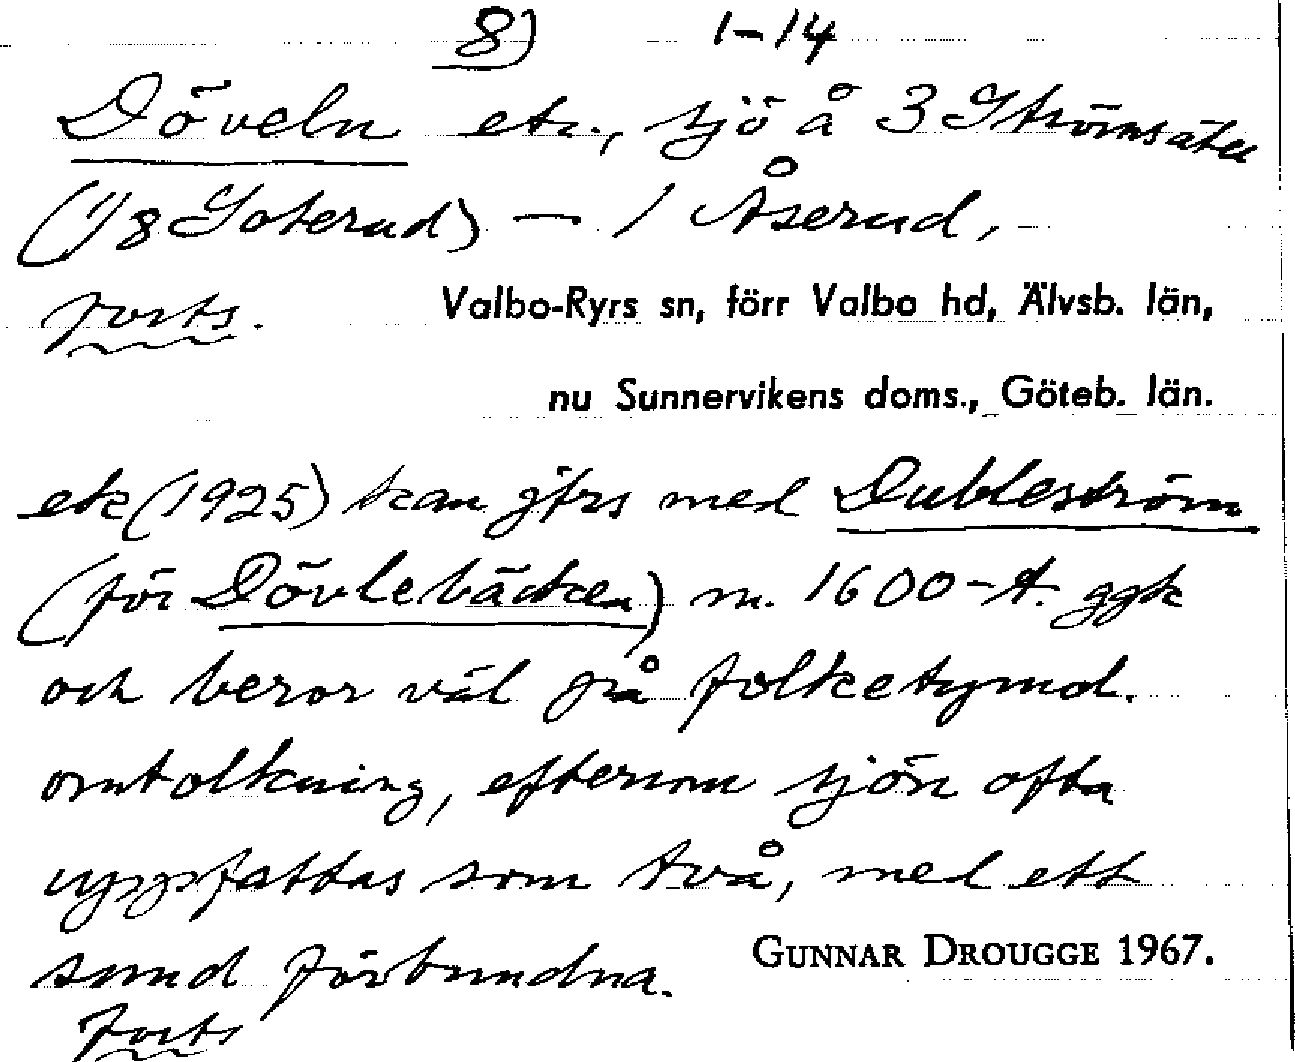 8) 1-14
Döveln etc., sjö å 3 Strömsäter
(1/8 Goterud) – 1 Åserud,
forts. Valbo-Ryrs sn, förr Valbo hd, Älvsb. län,
nu Sunnervikens doms., Göteb. län.
ek (1925) kan jfrs med Dubleström
(för Dövlebäcken) m. 1600-t. ggk
och beror väl på folketymol.
omtolkning, eftersom sjön ofta
uppfattas som två, med ett
sund förbundna. GUNNAR DROUGGE 1967.
forts